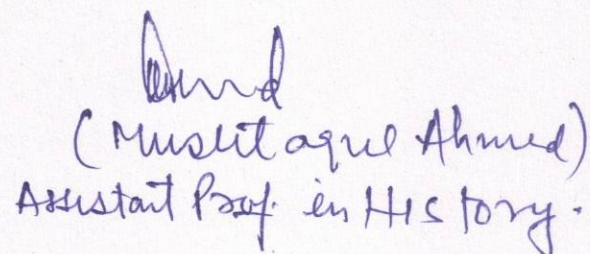 (Mushtaque Ahmed)
Assistant Prof. in History.